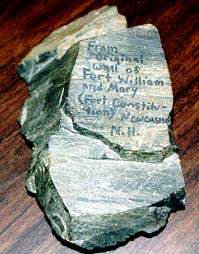 From
original
wall of
Fort William
and Mary
(Fort Constitu-
tion) Newcastle
N.H.